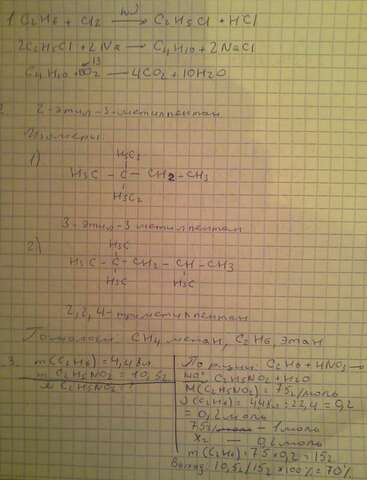 1. C2H6 + Cl2 hν→ C2H5Cl + HCl
2C2H5Cl + 2Na → C4H10 + 2NaCl
C4H10 + O2 — 4CO2 + 10H2O
2-этил-3-метилпентан
Изомеры:
1)
H3C
H3C – C – CH2 – CH3
H5C2
3-этил-3 метилпентан
2)
H3C
H3C – C – CH2 – CH – CH3
H3C H3C
2,2,4-триметилпентан
Гомологи: CH4 метан, C2H6, этан
3. m(C2H6) = 4,48л
m C2H5NO2 = 10,5г
C2H5NO2 = ?
C2H6 + HNO3 →
C2H5NO2 + H2O
M(C2H5NO2) = 75г/моль
ν(C2H6) = 4,48л : 22,4 = 0,2
= 0,2моль
75г – 1моль
xг — 0,2моль
m(C2H6) = 75 × 0,2 = 15г
выход: 10,5г/15г × 100% = 70%